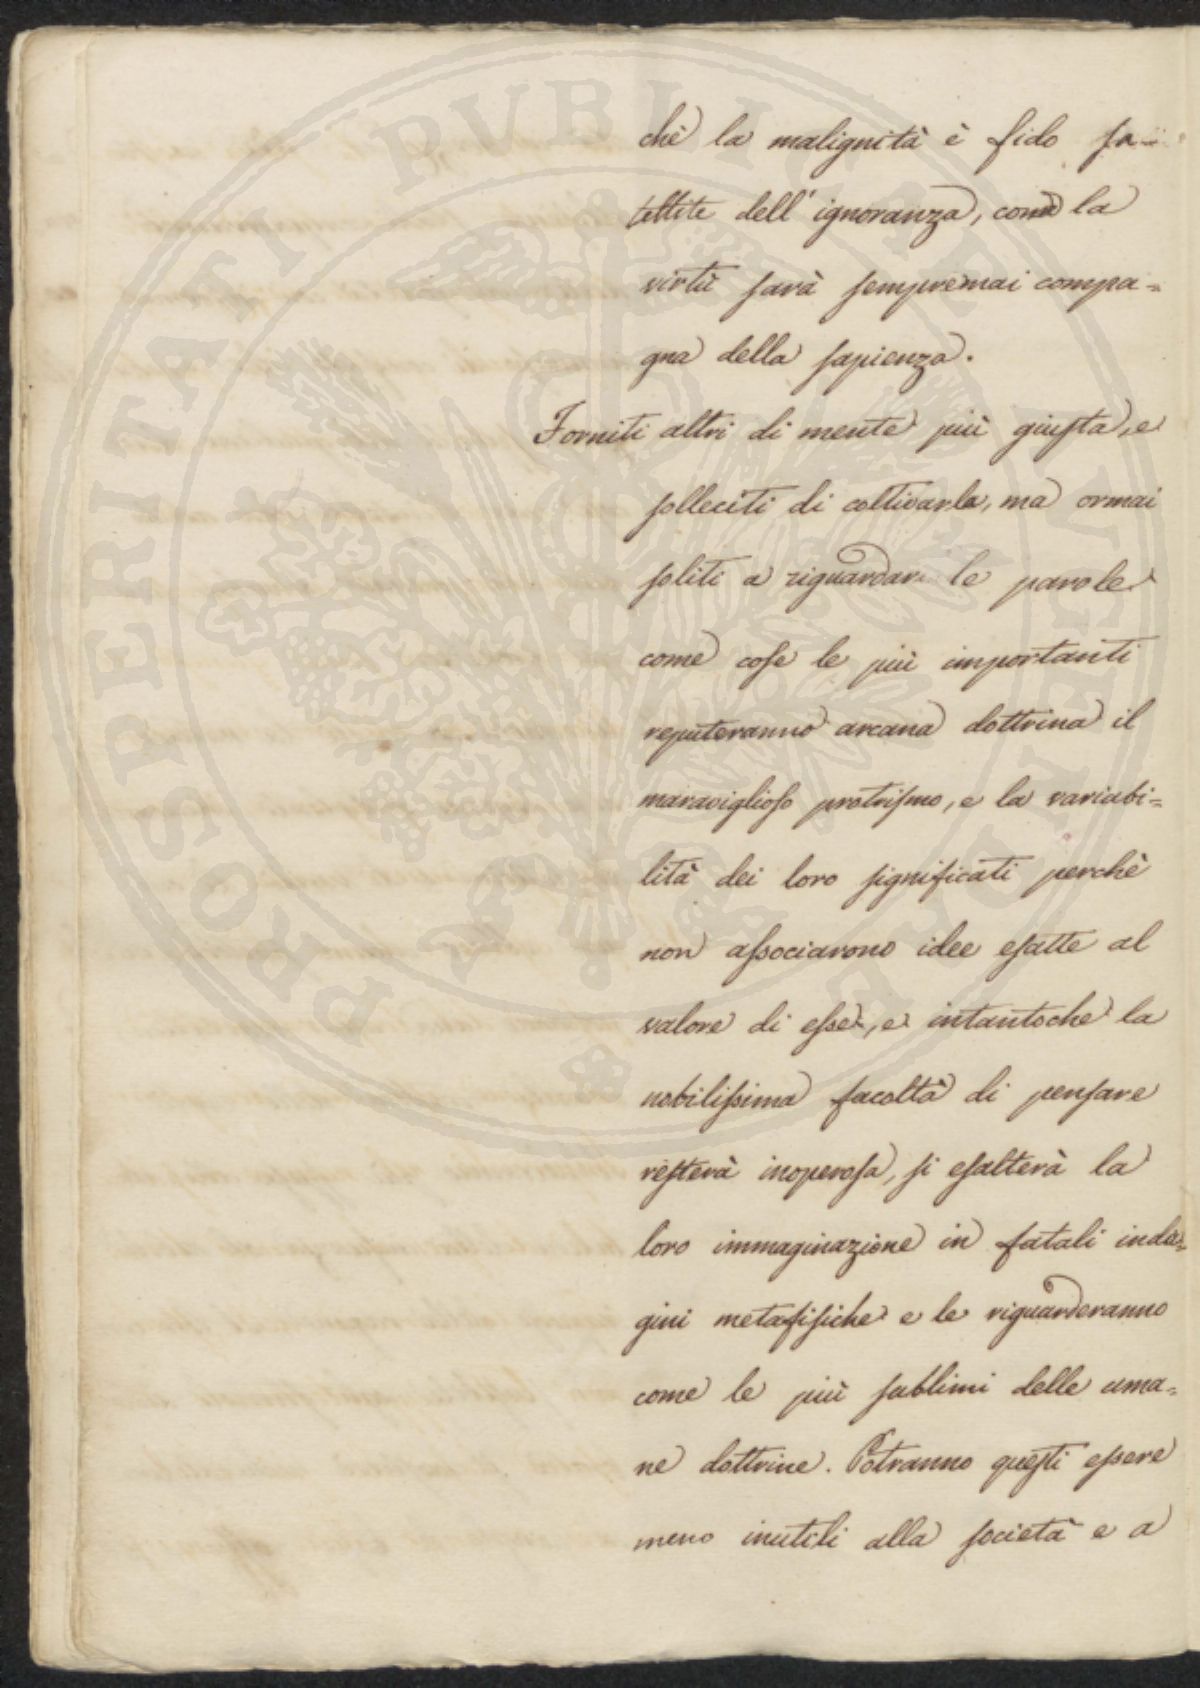 PROSPERITATI PUBLICAE AUGENDAE
chè la malignità è fido sa-
tellite dell'ignoranza, come la
virtù sarà sempremai compa=
gna della sapienza.
Forniti altri di mente più giusta, e
solleciti di coltivarla, ma ormai
soliti a riguardar le parole
come cose le più importanti
reputeranno arcana dottrina il
maraviglioso protrismo, e la variabi=
lità dei loro significati perchè
non associarono idee esatte al
valore di esse, e intantoche la
nobilissima facoltà di pensare
resterà inoperosa, si esalterà la
loro immaginazione in fatali inda=
gini metafisiche e le riguarderanno
come le più sublimi delle uma=
ne dottrine. Potranno questi essere
meno inutili alla società e a